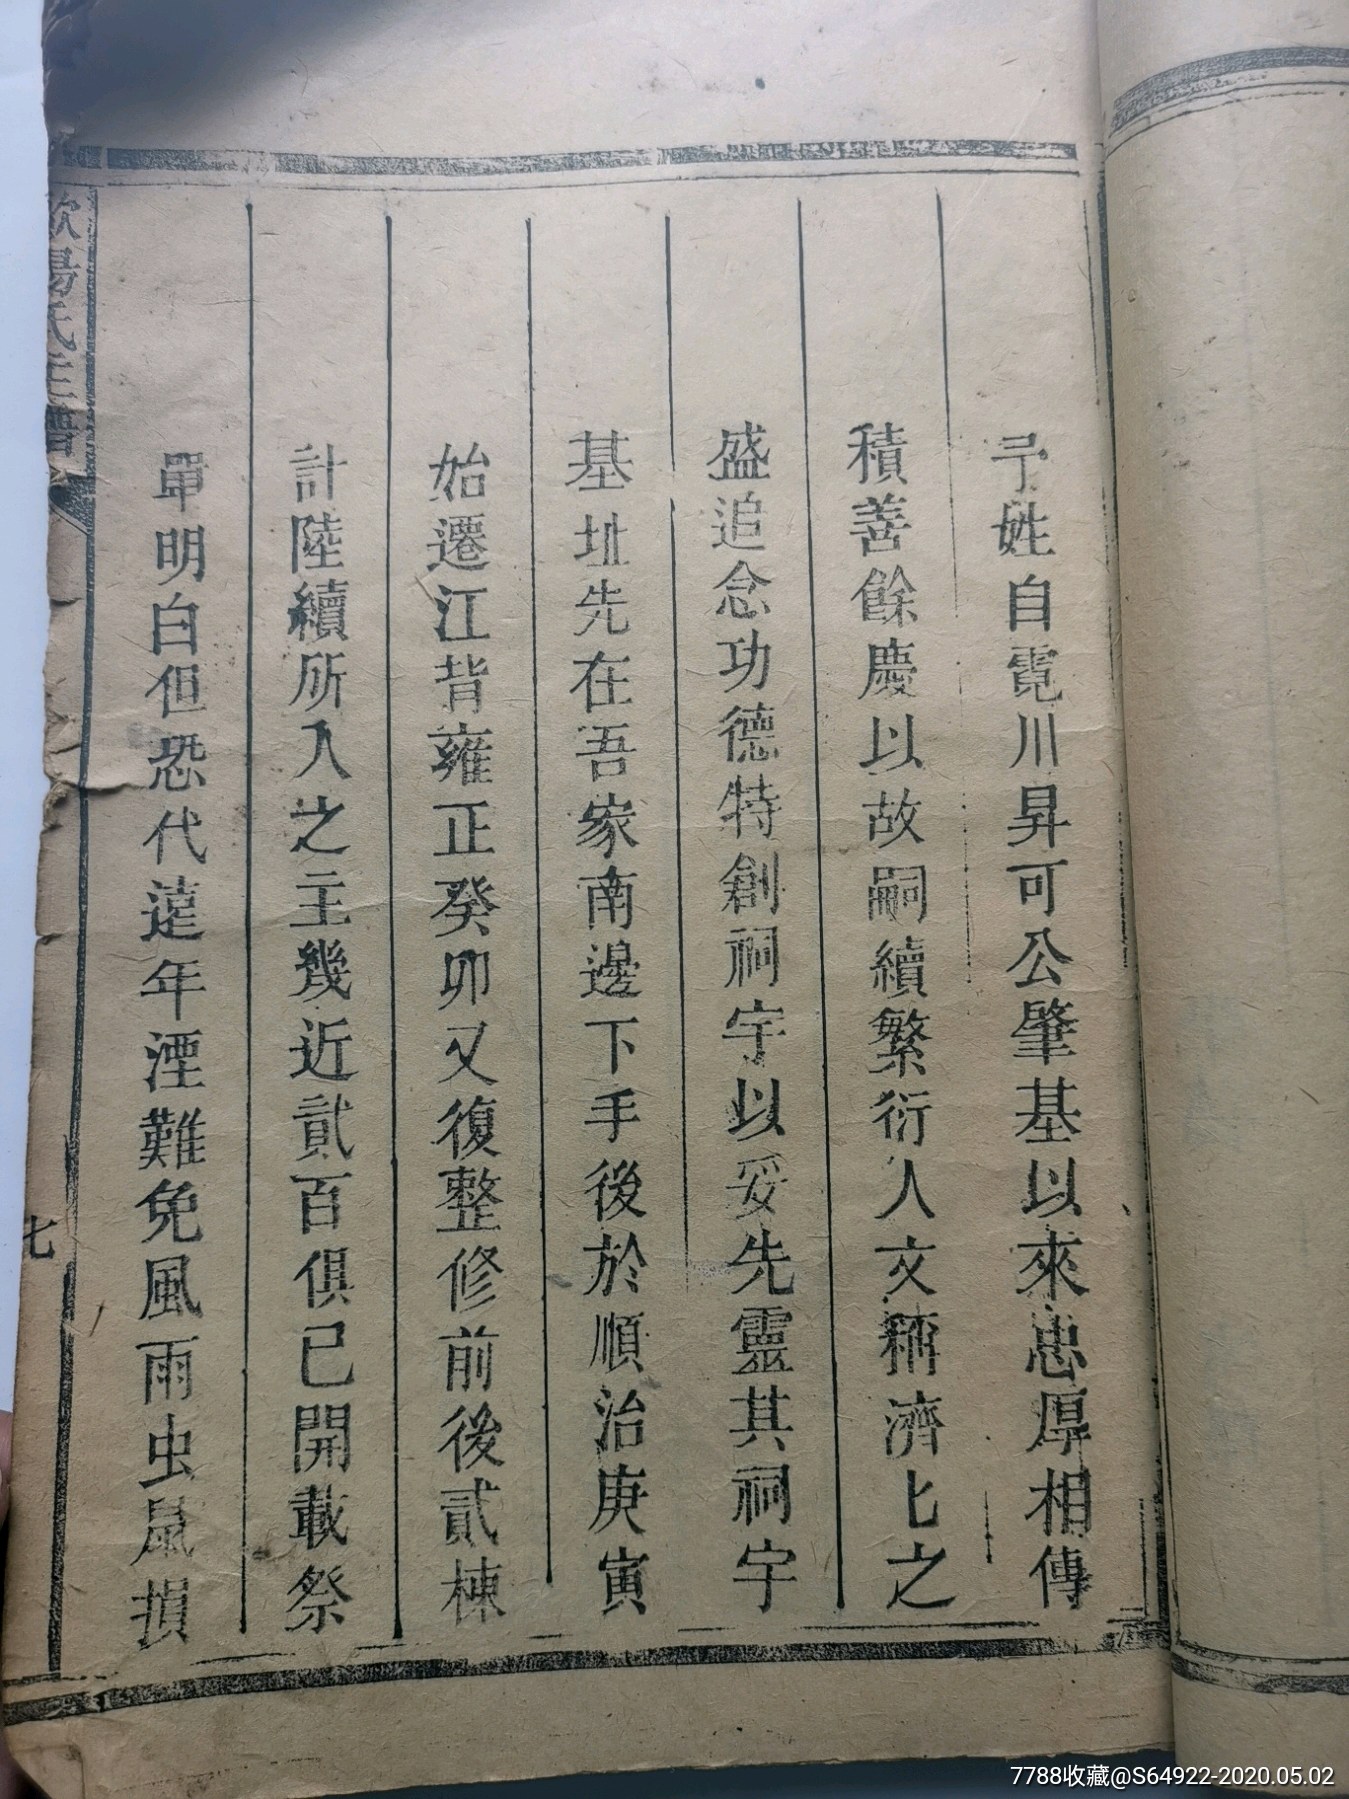 予姓自霓川昇可公肇基以來忠厚相傳
積善餘慶以故嗣續繁衍人文稱濟匕之
盛追念功德特創祠宇以妥先靈其祠宇
基址先在吾家南邊下手後於順治庚寅
始遷江背雍正癸卯又復整修前後貳棟
計陸續所入之主幾近貳百俱已開載祭
單明白但恐代遠年湮難免風雨虫鼠損
歐陽氏主譜
七
7788收藏@S64922-2020.05.02